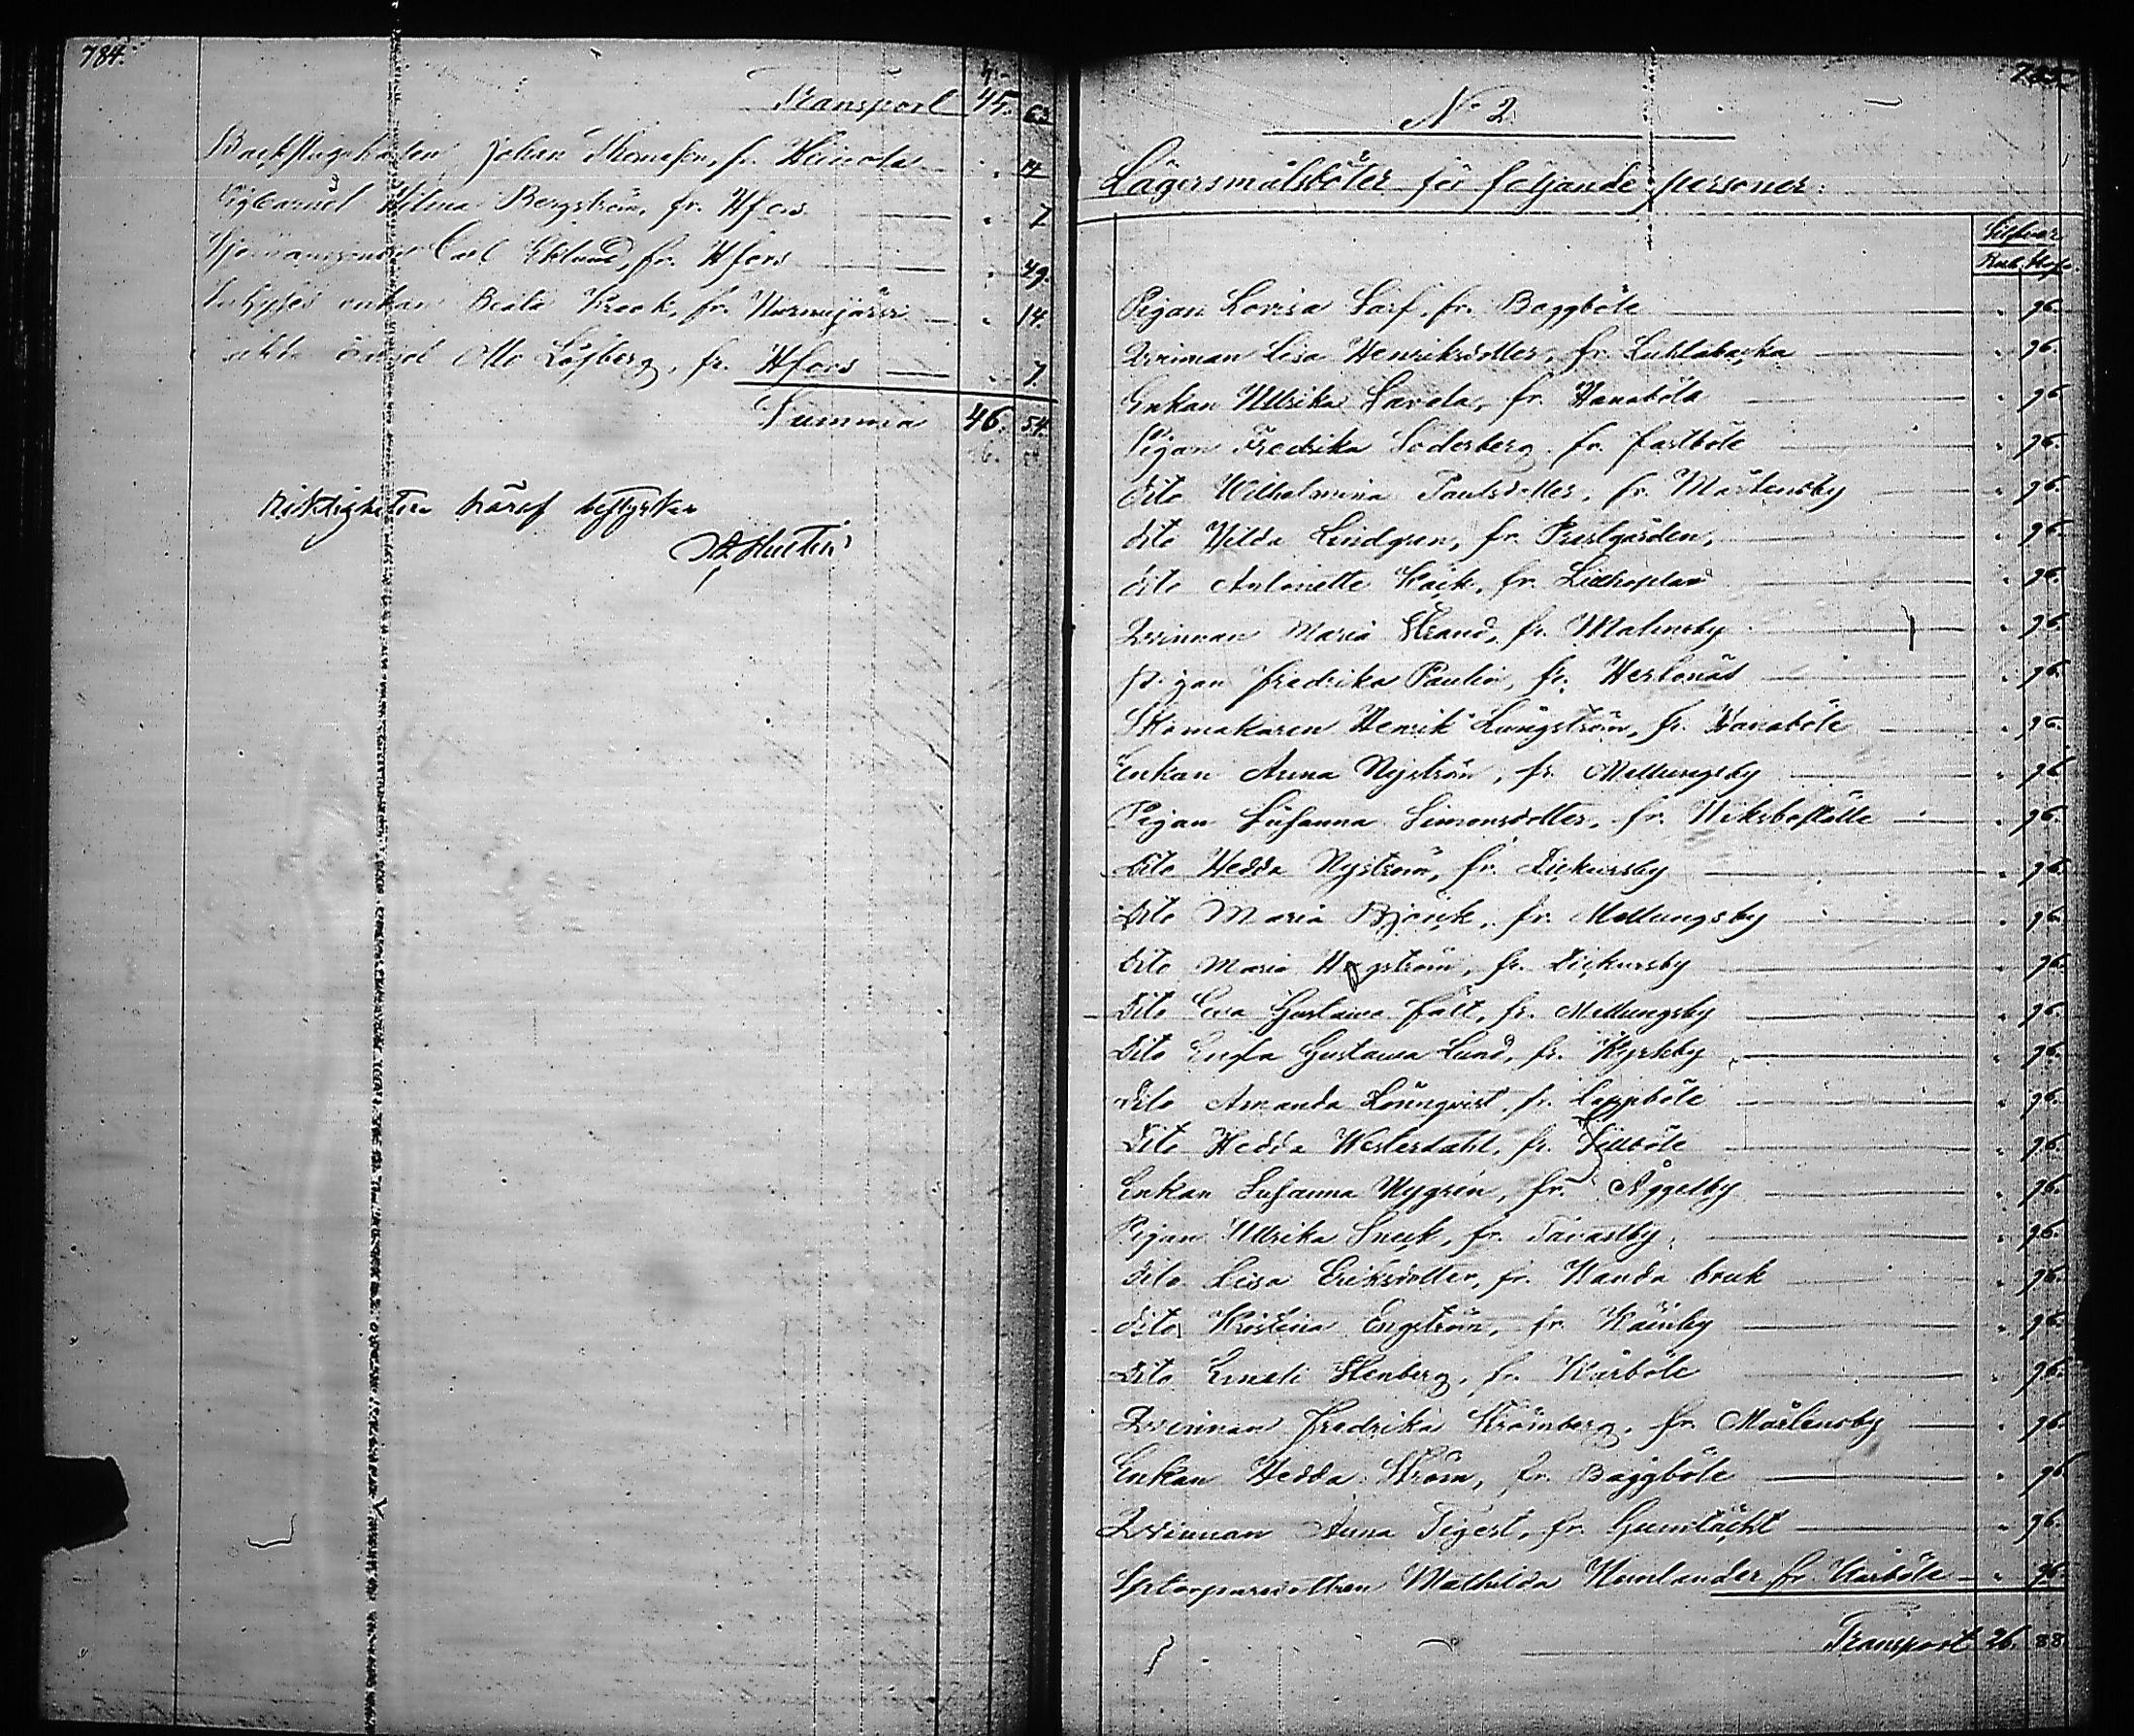 784.
Transport 45. 63
Backstugukarlen Johan Thomasson, fr. Heinola " 14
Wilma Bergström, fr. Hfors " 7
Carl Eklund, fr. Hfors " 49.
Inhyses enkan Beata Krook, fr. Nurmijärvi " 14.
Otto Löfberg, fr. Hfors " 7.
Summa 46. 54.
Riktigheten häraf bestyrker
785
No 2
Lägersmålsböter för följande personer:
Silfver
Rub. Kop.
Pigan Lovisa Sarf, fr. Baggböle " 96.
Qvinnan Lisa Henriksdotter, fr. Luhtabacka " 96.
Enkan Ulrika Savela, fr. Hanaböle " 96.
Pigan Fredrika Söderberg, fr. Fastböle " 96.
Dito Wilhelmina Paulsdotter, fr. Mårtensby " 96.
Dito Hilda Lindgren, fr. Prestgården, " 96.
Dito Antoinette Kack, fr. " 96.
Qvinnan Maria Strand, fr. Malmsby " 96.
Pigan Fredrika Paulin, fr. Hertonäs " 96.
Skomakaren Henrik Ljungström, fr. Hanaböle " 96.
Enkan Anna Nyström, fr. Mellungsby " 96.
Pigan Susanna Simonsdotter, fr. Wiksboställe " 96.
Dito Hedda Nyström, fr. Dickursby " 96.
Dito Maria Björck, fr. Mellungsby " 96.
Dito Maria Hagström, fr. Dickursby " 96.
Dito Eva Gustawa Fält, fr. Mellungsby " 96.
Dito Gustawa Lund, fr. Kyrkby " 96.
Dito Amanda Lönnqvist, fr. Lappböle " 96.
Dito Hedda Westerdahl, fr. Sillböle " 96.
Enkan Susanna Nygrén, fr. Åggelby " 96.
Pigan Ulrika Sneck, fr. Tavastby, " 96.
Dito Lisa Eriksdotter, fr. Wanda bruk " 96.
Dito Kristina Engström, fr. Kånby " 96.
Dito Emeli Stenberg, fr. Kårböle " 96.
Qvinnan Fredrika Strömberg, fr. Mårtensby " 96.
Enkan Hedda Ström, fr. Baggböle " 96.
Qvinnan Anna Tigest, fr. Gumtäckt " 96.
Mathilda fr. Kårböle " 96.
Transport 26. 88.